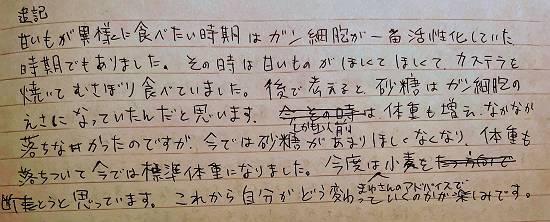 追記
甘いものが異様に食べたい時期はガン細胞が一番活性化していた
時期でもありました。その時は甘いものがほしくてほしくて、カステラを
焼いてむさぼり食べていました。後で考えると、砂糖はガン細胞の
えさになっていたんだと思います。今その時は体重も増え、なかなか
しかも以前
落ちなかったのですが、今では砂糖があまりほしくなくなり、体重も
落ちついて今では標準体重になりました。今度は小麦を
さんのアドバイスで
断とうと思っています。これから自分がどう変わっていくのかが楽しみです。